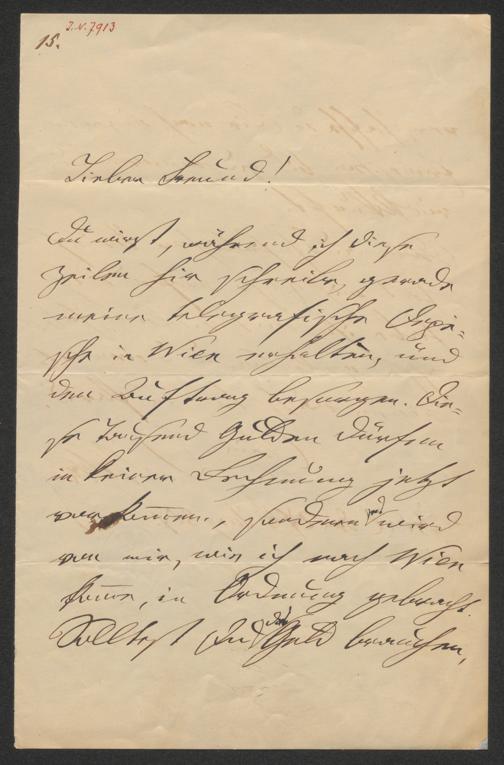 J.N. 7913
15.
Lieber Freund!
Du wirst, während ich diese
Zeilen hier schreibe, gerade
meine telegrafische Depe=
sche in Wien erhalten, und
den Auftrag besorgen. Die=
se tausend Gulden dürfen
in keiner Rechnung jetzt
vorkom̄en, sondern wird
von mir, wie ich nach Wien
kom̄e, in Ordnung gebracht.
Solltest Du das Geld brauchen,